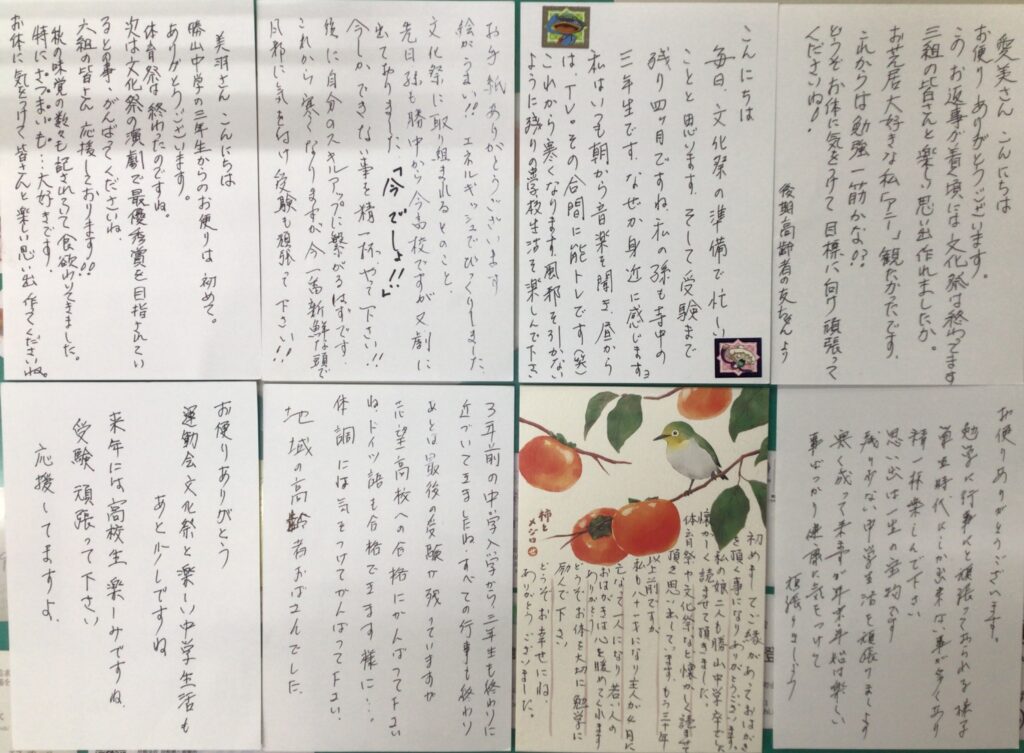 愛美さん こんにちは
お便りありがとうございます。
このお返事が着く頃には文化祭は終わってます
三組の皆さんと楽しい思い出作れましたか。
お芝居大好きな私「アニー」観たかったです。
これからは勉強一筋かな!?
どうぞお体に気をつけて 目標に向け頑張って
くださいね!
後期高齢者の友ちゃん より
こんにちは
毎日、文化祭の準備で忙しい
ことと思います。そして受験まで
残り四ヶ月ですね。私の孫も寺中の
三年生です。なぜか身近に感じます。
私はいつも朝から音楽を聞き、昼から
は、TV。その合間に能トレです(笑)
これから寒くなります。風邪をひかない
ように残りの学校生活を楽しんで下さい
お手紙ありがとうございます
絵がうまい!! エネルギッシュでびっくりしました。
文化祭に取り組まれるとのこと、
先日孫も勝中から今高校ですが文劇に
出ておりました 「今でしょ!!」
今しか、できない事を精一杯やって下さい!!
後に自分のスキルアップに繋がるはずです。
これから寒くなりますが、今一番新鮮な頭で
風邪に気を付け受験も頑張って下さい!!
美羽さん こんにちは
勝山中学の三年生からのお便りは初めて。
ありがとうございます。
体育祭は終わったのですね。
次は文化祭の演劇で最優秀賞を目指されてい
るとの事、がんばってくださいね。
大組の皆さん 応援しております!!
秋の味覚の数々も記されていて食欲わいてきました。
特に“さつまいも”…大好きです。
お体に気をつけて、皆さんと楽しい思い出作ってくださいね。
お便りありがとうございます。
勉学に行事にと頑張っておられる様子
学生時代にしか出来ない事が多くあり
精一杯楽しんで下さい
思い出は一生の宝物です
残り少ない中学生活を頑張りましょう
寒く成って来ますが年末年始は楽しい
事ばっかり健康に気をつけて
頑張りましょう
柿とメジロ
初めまして ご縁があっておはがき
を頂く事になりありがとうございます。
私の娘二人も勝山中学卒で
懐かしく読ませて頂きました。
体育祭や文化祭など懐かしく読ませて
頂き思い出しています。もう三十年
以上前ですが。
私も八十一才になり主人が 月に
亡なって一人になり若い人の
おはがきは心を暖めてくれます
ありがとう。
どうぞお体を大切に勉学に
励んで下さい
どうぞお幸せにね。
ありがとうございました。
3年前の中学入学から、三年生も終わりに
近づいてきましたね。すべての行事も終わり
あとは最後の受験が残っていますが
志望高校への合格にがんばって下さい
ね、ドイツ語も合格できます様に…。
体調には気をつけてがんばって下さい。
地域の高齢者おばさんでした。
お便りありがとう
運動会文化祭と楽しい中学生活も
あと少しですね
来年には高校生 楽しみですね。
受験 頑張って下さい
応援してますよ。